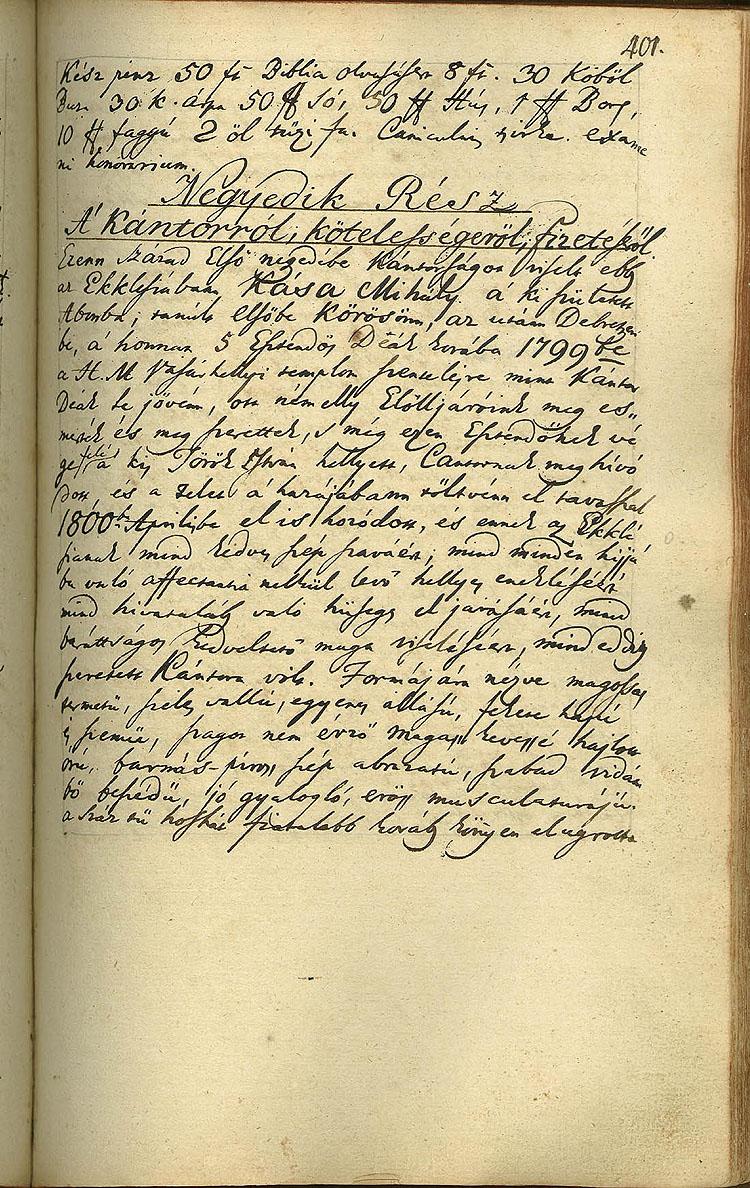 401.
Kész pénz 50 ft Biblia olvasásért 8 ft. 30 Köböl
Buza 30 k. árpa 50 ℔ Só, 50 ℔ Hús, 1 ℔ Bors,
10 ℔ fagyú 2 öl tüzi fa. Caniculai exame
ni honorarium.
Negyedik Rész
A' Kántorról, kötelességeröl, fizetéséröl.
Ezenn Század Elsö negedébe Kántorságot viselt ebb
az Ekklesiabann Kása Mihály a' ki születet
Abonba; tanúlt elsöbe Körösönn, az után Debretzen
be, a' honnan 5 Esztendös Deák korába 1799be
a H. M Vásárhellyi templom szentelésre mint Kántor
Deák le jövén, ott némelly Elölljáróink meg es„
merték és meg szerették, s még ezen Esztendönek vé
ge felé a' kis Török István hellyett, Cantornak meg hivó
dott, és a telet a' hazájábann töltvénn el tavasszal
1800b. Aprilisbe el is hozódott, és ennek az Ekklé
siának mind kedves szép szaváért; mind minden hijjá
ba való affectantia nélkül levö hellyes énekléséért
mind hivatalába való hüséges el járásáért, mind
baráttságos kedveltetö maga viseléséért, mind eddig
szeretett Kántora vólt. Formájára nézve magossas
termetü, széles vallú, egyenes állású, fekete hajú
és szemü, magass kevessé hajlott
órú, barnás-piros szép abrazatú, szabad vidám
bö beszédü, jó gyalogló, erös musculaturájú.
a fiatalabb korába könyen el ugrotta